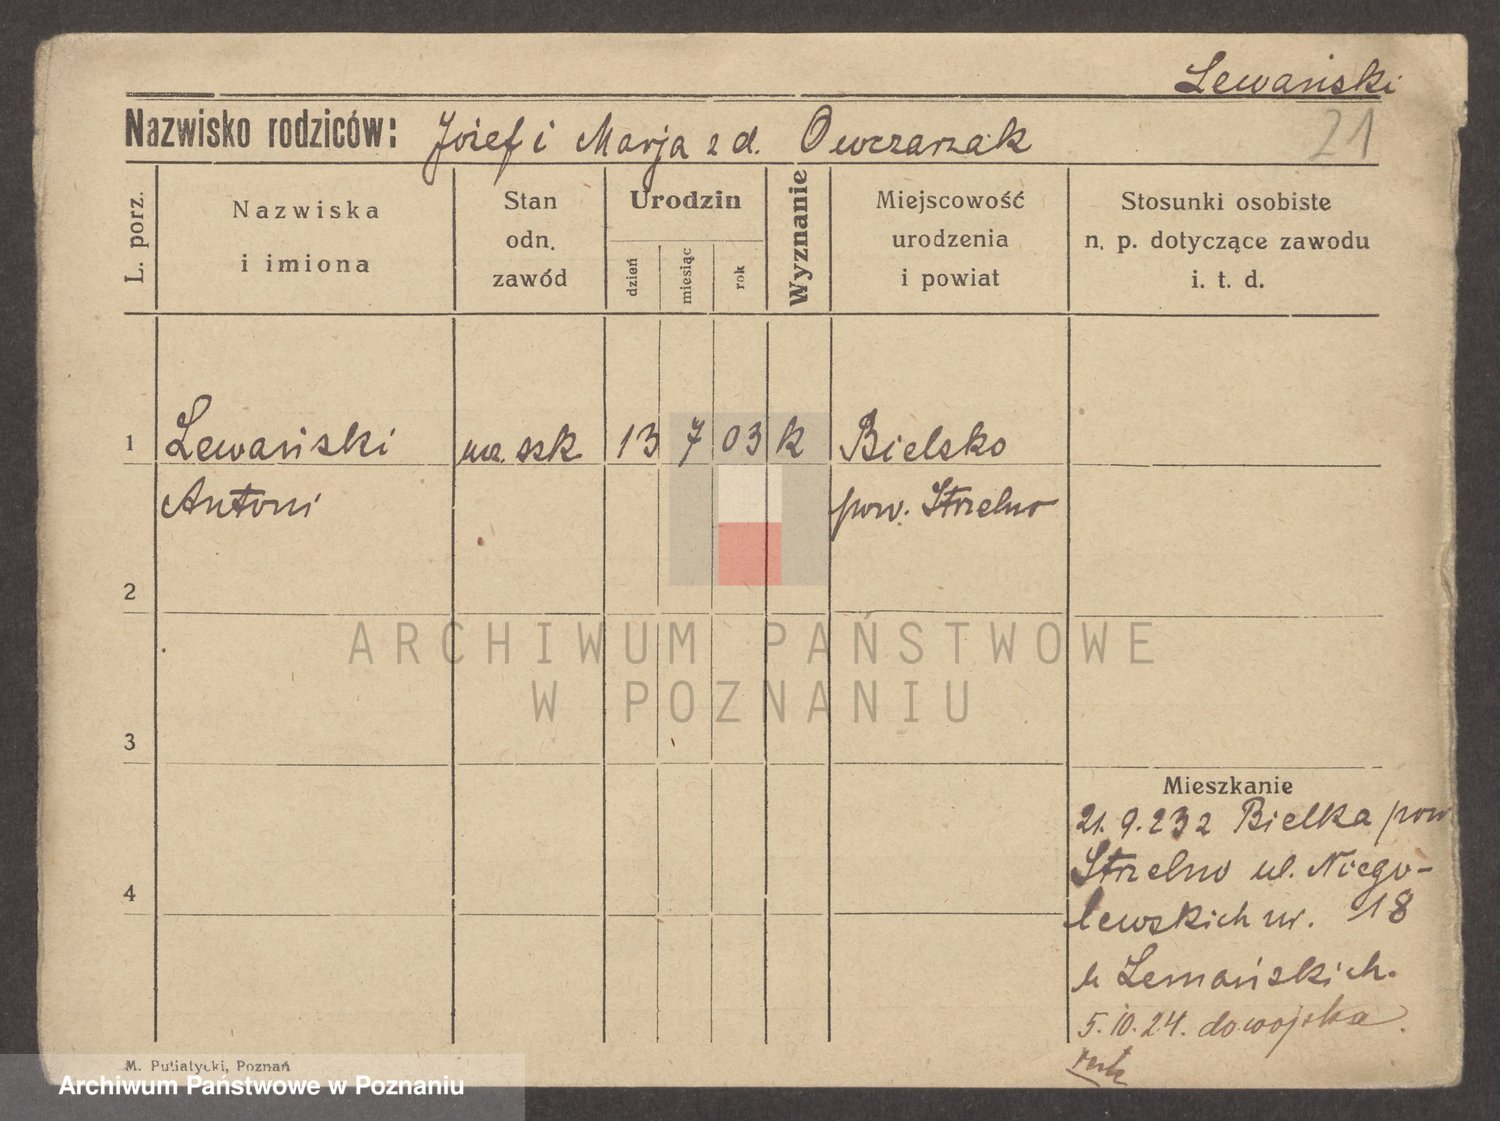 Lewański
21
Nazwisko rodziców: Józef i Marja z d. Owczarzak
L. porz.
Nazwiska
i imiona
Stan
odn.
zawód
Urodzin
dzień
miesiąc
rok
Wyznanie
Miejscowość
urodzenia
i powiat
Stosunki osobiste
n. p. dotyczące zawodu
i. t. d.
1 Lewański szk. 13 7 03 k Bielsko
Antoni pow. Strzelno
2
ARCHIWUM PAŃSTWOWE
W POZNANIU
3
Mieszkanie
21. 9. 23 z Bielka pow
Strzelno ul. Niego-
4
lewskich nr. 18
u Lemańskich.
5. 10. 24. do wojska.
M. Putiatycki, Poznań
Archiwum Państwowe w Poznaniu